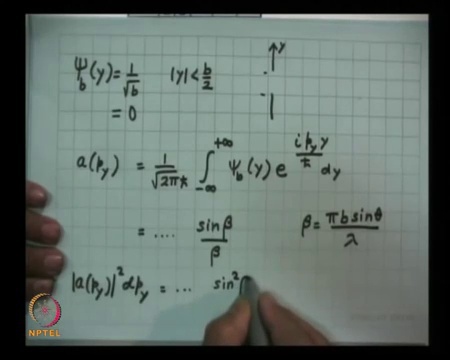 ψ_b(y) = 1/√b |y| < b/2
= 0
y
a(p_y) = 1/√(2πℏ) ∫_{-∞}^{+∞} ψ_b(y) e^{i p_y y/ℏ} dy
= .... sinβ/β β = πb sinθ/λ
|a(p_y)|² dp_y = ... sin²
NPTEL